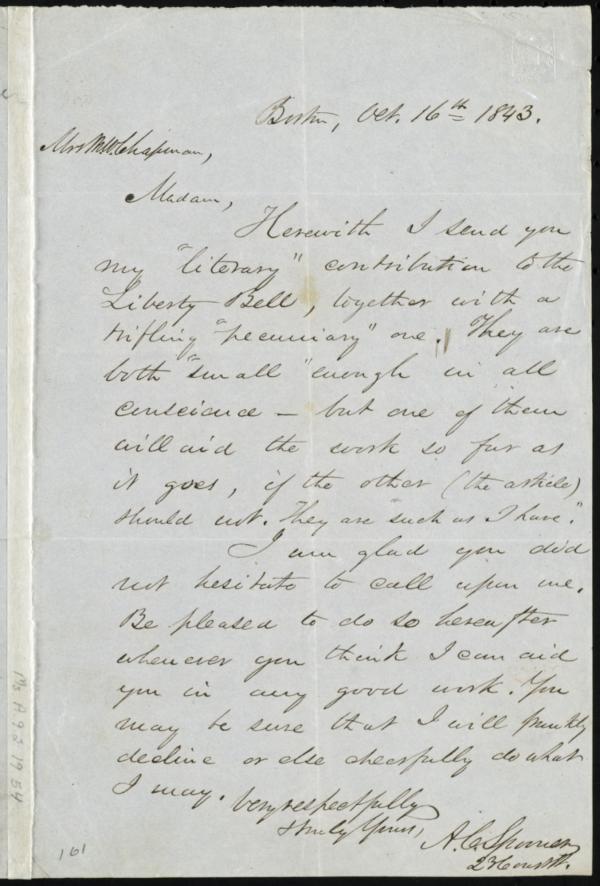 Boston, Oct. 16th 1843.
Mrs M.W. Chapman,
Madam,
Herewith I send you
my "literary" contribution to the
Liberty Bell, together with a
trifling "pecuniary" one. They are
both "small" enough in all
conscience – but one of them
will aid the work so far as
it goes, if the other (the article)
should not. They are "such as I have".
I am glad you did
not hesitate to call upon me.
Be pleased to do so hereafter
whenever you think I can aid
you in any good work. You
may be sure that I will frankly
decline or else cheerfully do what
I may. Very respectfully
truly Yours,
A. C. Spooner
23 Court St.
Ms A.9.2.19.84
161